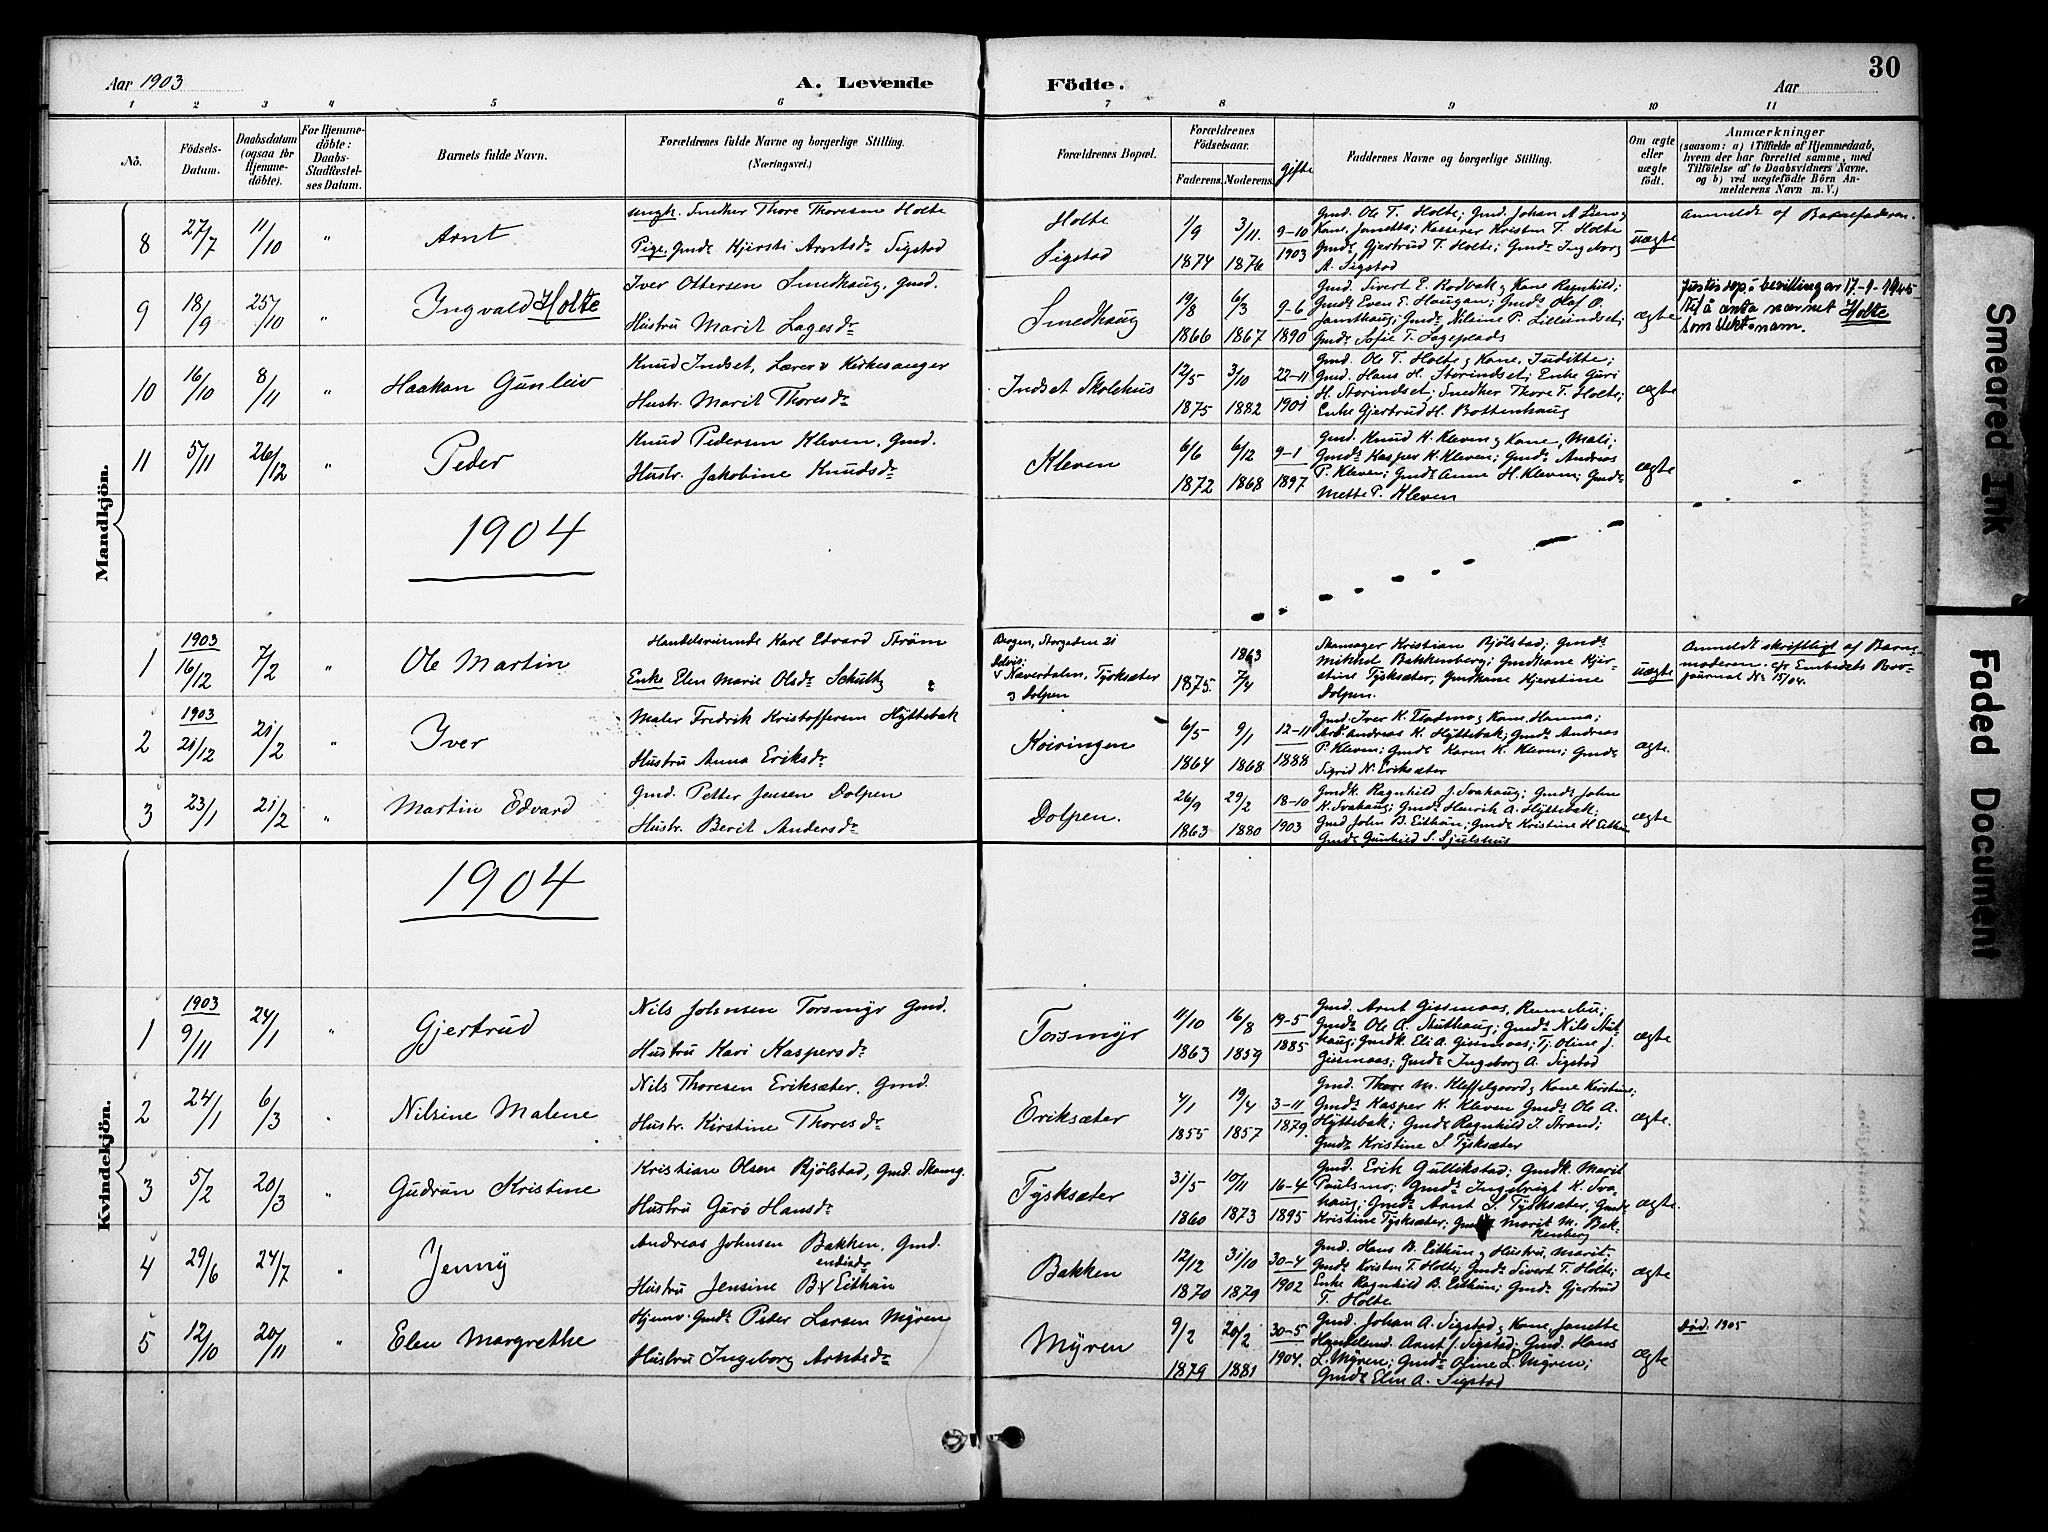 Aar 1903
A. Levende
Födte.
Aar
30
1 2 3 4 5 6 7 8 9 10 11
No.
Födsels-Datum.
Daabsdatum (ogsaa for Hjemmedöbte).
For Hjemmedöbte: Daabs-Stadfæstelses Datum.
Barnets fulde Navn.
Forældrenes fulde Navne og borgerlige Stilling. (Næringsvei.)
Forældrenes Bopæl.
Forældrenes Födselsaar.
Faderens. Moderens.
Gifte
Faddernes Navne og borgerlige Stilling.
Om ægte eller uægte födt.
Anmærkninger
(saasom: a) i Tilfælde af Hjemmedaab, hvem der har forrettet samme, med Tilföielse af to Daabsvidners Navne, og b) ved uægtefödte Börn Anmelderens Navn m. V.)
Mandkjön.
8 27/7 11/10 " Arnt
ungk. Snedker Thore Thoresen Holte
Pige, Gmds Kjersti Arntsdr Sigstad
Holte
Sigstad
1/9 1874 3/11 1876 9-10 1903
Gmd. Ole T. Holte; Gmd. Johan A Lien og
Kone, Janetta; Kasserer Kristen T. Holte
Gmds Gjertrud T. Holte; Gmds Ingeborg
A. Sigstad
uægte
Anmeldt af Barnefaderen.
9 18/9 25/10 " Ingvald Holte
Iver Ottersen Smedhaug, Gmd.
Hustru Marit Lagesdr
Smedhaug
19/8 1866 6/3 1867 9-6 1890
Gmd. Sivert E. Rodbak og Kone Ragnhild;
Gmds Even E. Haugan; Gmds Olaf O.
Jamthaug; Gmds Nilsine P. Lilleindset;
Gmds Sofie T. Lageplads
ægte
Justisdep.s bevilling av 17-9-1945
til å anta navnet Holte
som slektsnavn.
10 16/10 8/11 " Haakon Gunleiv
Knud Indset, Lærer & Kirkesanger
Hustr. Marit Thoresdr
Indset Skolehus
12/5 1875 3/10 1882 22-11 1901
Gmd. Ole T. Holte og Kone, Juditte;
Gmd. Hans H. Storindset; Enke Guri
H. Storindset; Snedker Thore T. Holte;
Enke Gjertrud H. Bottenhaug
ægte
11 5/11 26/12 " Peder
Knud Pedersen Kleven, Gmd.
Hustr. Jakobine Knudsdr
Kleven
6/6 1872 6/12 1868 9-1 1897
Gmd. Knud H. Kleven og Kone, Mali;
Gmds Kasper K. Kleven; Gmds Andreas
P. Kleven; Gmds Anne H. Kleven; Gmds
Mette P. Kleven
ægte
1904
1 1903 16/12 7/2 " Ole Martin
Handelsreisende Karl Edvard Ström
Enke Elen Marie Olsdr Schultz
Bergen, Storgaden 21
Delvis:
Næverdalen, Tysksæter
og Dolpen
1875. 1863 7/4
Skomager Kristian Bjølstad; Gmds
Mikkel Bakkenberg; Gmdkone Kjerstine Tysksæter; Gmdkone Kjerstine
Dolpen.
uægte
Anmeldt skriftligt af Barnemoderen. cfr Embedets Brevjournal No 15/04.
2 1903 21/12 21/2 " Iver
Maler Fredrik Kristoffersen Hyttebak
Hustru Anna Eriksdr
Koiringen
6/5 1864 9/1 1868 12-11 1888
Gmd. Iver K. Flatmo og Kone, Hanna;
Arb. Andreas K. Hyttebak; Gmds Andreas
P. Kleven; Gmds Karen K. Kleven; Gmds
Sigrid N. Eriksæter
ægte.
3 23/1 21/2 " Martin Edvard
Gmd. Petter Jensen Dolpen
Hustr. Berit Andersdr
Dolpen.
26/9 1863 29/2 1880 18-10 1903
Gmdk. Ragnhild J. Svahaug; Gmds John
K. Svahaug; Gmds Henrik A. Hyttebak;
Gmd John B. Eithun; Gmds Kristine H. Eithun
Gmds Gunhild S. Sjulshus
ægte
1904
Kvindekjön.
1 1903 9/11 24/1 " Gjertrud
Nils Johnsen Torsmyr Gmd.
Hustru Kari Kaspersdr
Torsmyr
11/10 1863 16/8 1859 19-5 1885
Gmd. Arnt Gissmaas, Rennebu;
Gmds Ole A. Stuthaug; Gmds Nils Stuthaug; Gmdk. Eli A. Gissmaas; Tj. Oline J.
Gissmaas; Gmds Ingeborg A. Sigstad
ægte
2 24/1 6/3 " Nilsine Malene
Nils Thoresen Eriksæter, Gmd.
Hustr. Kirstine Thoresdr
Eriksæter
4/1 1855 19/4 1857 3-11 1879.
Gmd. Thore M. Kleffelgaard og Kone Kirstine;
Gmds Kasper K. Kleven Gmds Ole A.
Hyttebak; Gmds Ragnhild I. Strand;
Gmds Kristine S. Tysksæter
ægte.
3 5/2 20/3 " Gudrun Kristine
Kristian Olsen Bjølstad, Gmd. Skomg.
Hustru Guro Hansdr
Tysksæter
31/5 1860 10/11 1873 16-4 1895
Gmd. Erik Gullikstad; Gmdk. Marit
Paulsmo; Gmds Ingebrigt K. Svahaug; Gmds Arnt S. Tysksæter, Gmds
Kristine Tysksæter; Gmds Marit M. Bakkenberg
ægte.
4 29/6 24/7 " Jenny
Andreas Johnsen Bakken, Gmd.
Hustru Jensine B. Eithun
Bakken
12/12 1870 31/10 1879 30-4 1902
Gmd. Hans B. Eithun og Hustru, Marit;
Gmds Kristen T. Holte; Gmds Sivert T. Holte;
Enke Ragnhild B. Eithun; Gmds Gjertrud
T. Holte.
ægte
5 12/10 20/11 " Elen Margrethe
Hjemv. Gmds Peter Larsen Myren
Hustru Ingeborg Arntsdr
Myren
9/2 1879 20/2 1881 30-5 1904.
Gmd. Johan A. Sigstad og Kone, Janette
Handelsmd. Arnt J. Sigstad, Gmd. Hans
L. Myren; Gmds Oline L. Myren;
Gmds Elen A. Sigstad
ægte
Död. 1905
Smeared Ink
Faded Document